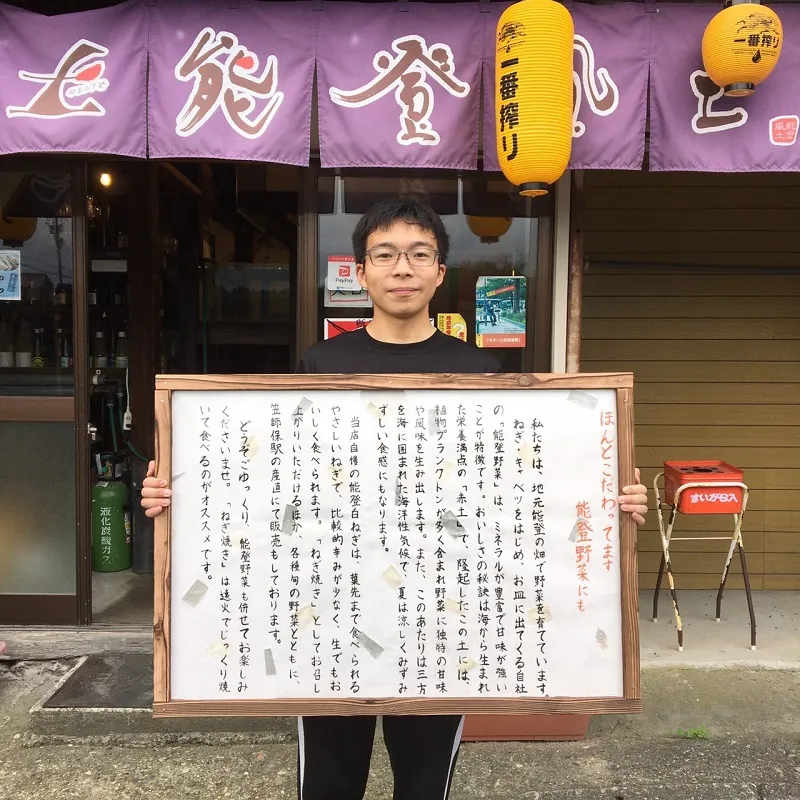 土
能
登
一番搾り
一番搾り
能登
風土
PayPay
ほんとこだわってます
能登野菜にも
私たちは、地元能登の畑で野菜を育てています。
ねぎ・キャベツをはじめ、お皿に出てくる自社
の「能登野菜」は、ミネラルが豊富で甘味が強い
ことが特徴です。おいしさの秘訣は海から生まれ
た栄養満点の「赤土」で、隆起したこの土には、
植物プランクトンが多く含まれ野菜に独特の甘味
や風味を生み出します。また、このあたりは三方
を海に囲まれた海洋性気候で、夏は涼しくみずみ
ずしい食感にもなります。
当店自慢の能登白ねぎは、葉先まで食べられる
やさしいねぎで、比較的辛みが少なく、生でもお
いしく食べられます。「ねぎ焼き」としてお召し
上がりいただけるほか、各種旬の野菜とともに、
笠師保駅の産直にて販売もしております。
どうぞごゆっくり、能登野菜も併せてお楽しみ
くださいませ。「ねぎ焼き」は遠火でじっくり焼
いて食べるのがオススメです。
液化炭酸ガス
すいがら入